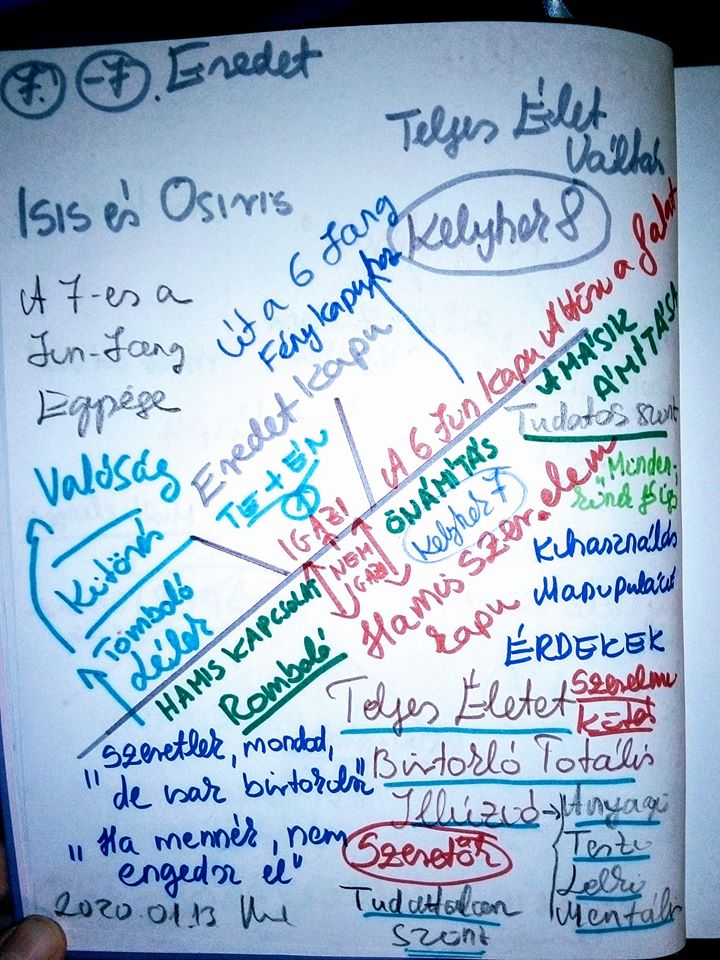 7. -7. Eredet
Teljes Élet
Váltás
Isis és Osiris
Kelyhek 8
Út a 6 Jang
Fénykapuhoz
A 7-es a
Jin-Jang
Egysége
Eredet Kapu
TE + ÉN
A 6 Jin Kapu Áttörni a falat
A MÁSIK
ÁMÍTÁSA
Tudatos szint
"Minden-
Valóság
Kitörés
Tomboló
Lélek
IGAZI
NEM
IGAZI
ÖNÁMÍTÁS
Kelyhek 7
Hamis Szerelem
kapu
HAMIS KAPCSOLAT
Romboló
Kihasználás
Manipuláció
ÉRDEKEK
Teljes Életet
Szerelmi
Kötés
"Szeretlek, mondod,
de csak birtokolsz"
Birtorló Totális
Illúzió
Anyagi
Testi
Lelki
Mentális
"Ha mennék, nem
engedsz el"
Szeretők
Tudattalan
Szint
2020.01.13